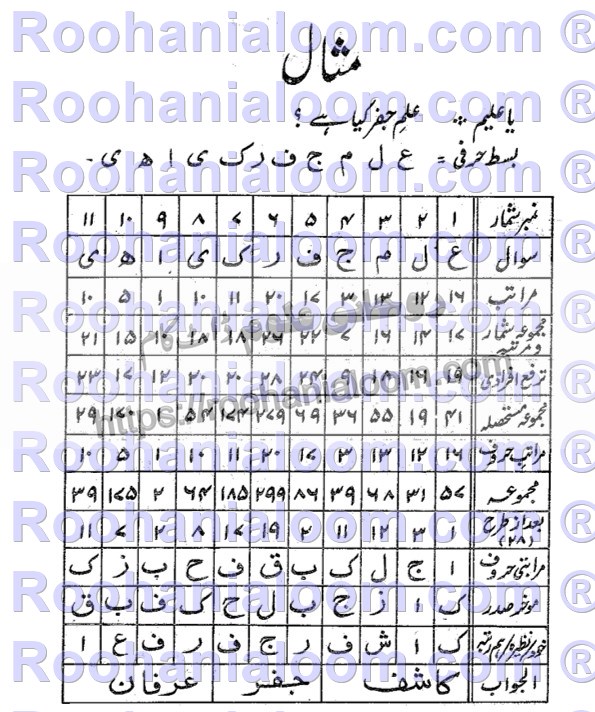 Roohanialoom.com ®
مثال
Roohanialoom.com ®
یا علیم ... علمِ جفر کیا ہے ؟
بسط حرفی = ع ل م ج ف ر ک ی ا ھ ی ۔
Roohanialoom.com ®
Roohanialoom.com ®
نمبر شمار ۱ ۲ ۳ ۴ ۵ ۶ ۷ ۸ ۹ ۱۰ ۱۱
سوال ع ل م ج ف ر ک ی ا ھ ی
Roohanialoom.com ®
مراتب ۱۶ ۱۲ ۱۳ ۳ ۱۷ ۲۰ ۱۱ ۱۰ ۱ ۵ ۱۰
Roohanialoom.com ®
مجموعہ شمار و مرتبہ ۱۷ ۱۴ ۱۶ ۷ ۲۲ ۲۶ ۱۸ ۱۸ ۱۰ ۱۵ ۲۱
روحانی علوم ڈاٹ کام
Roohanialoom.com ®
ترفع افرادی ۱۹ ۱۶ ۱۸ ۹ ۲۴ ۲۸ ۲۰ ۲۰ ۱۲ ۱۷ ۲۳
https://roohanialoom.com
Roohanialoom.com ®
مجموعہ مستحصلہ ۴۱ ۱۹ ۵۵ ۳۶ ۶۹ ۲۷۹ ۱۷۴ ۵۴ ۱ ۱۷۰ ۲۹
مراتب حروف ۱۶ ۱۲ ۱۳ ۳ ۱۷ ۲۰ ۱۱ ۱۰ ۱ ۵ ۱۰
Roohanialoom.com ®
مجموعہ ۵۷ ۳۱ ۶۸ ۳۹ ۸۶ ۲۹۹ ۱۸۵ ۶۴ ۲ ۱۷۵ ۳۹
بعد از طرح (۲۸) ۱ ۳ ۱۲ ۱۱ ۲ ۱۹ ۱۷ ۸ ۲ ۷ ۱۱
Roohanialoom.com ®
مراتبی حروف ا ج ل ک ب ق ف ح ب ز ک
Roohanialoom.com ®
موخر صدر ک ا ز ج ب ل ح ک ف ب ق
Roohanialoom.com ®
خود/نظیرہ/ہم رتبہ ک ا ش ف ر ج ف ر ف ع ا
Roohanialoom.com ®
الجواب کاشف جفر عرفان